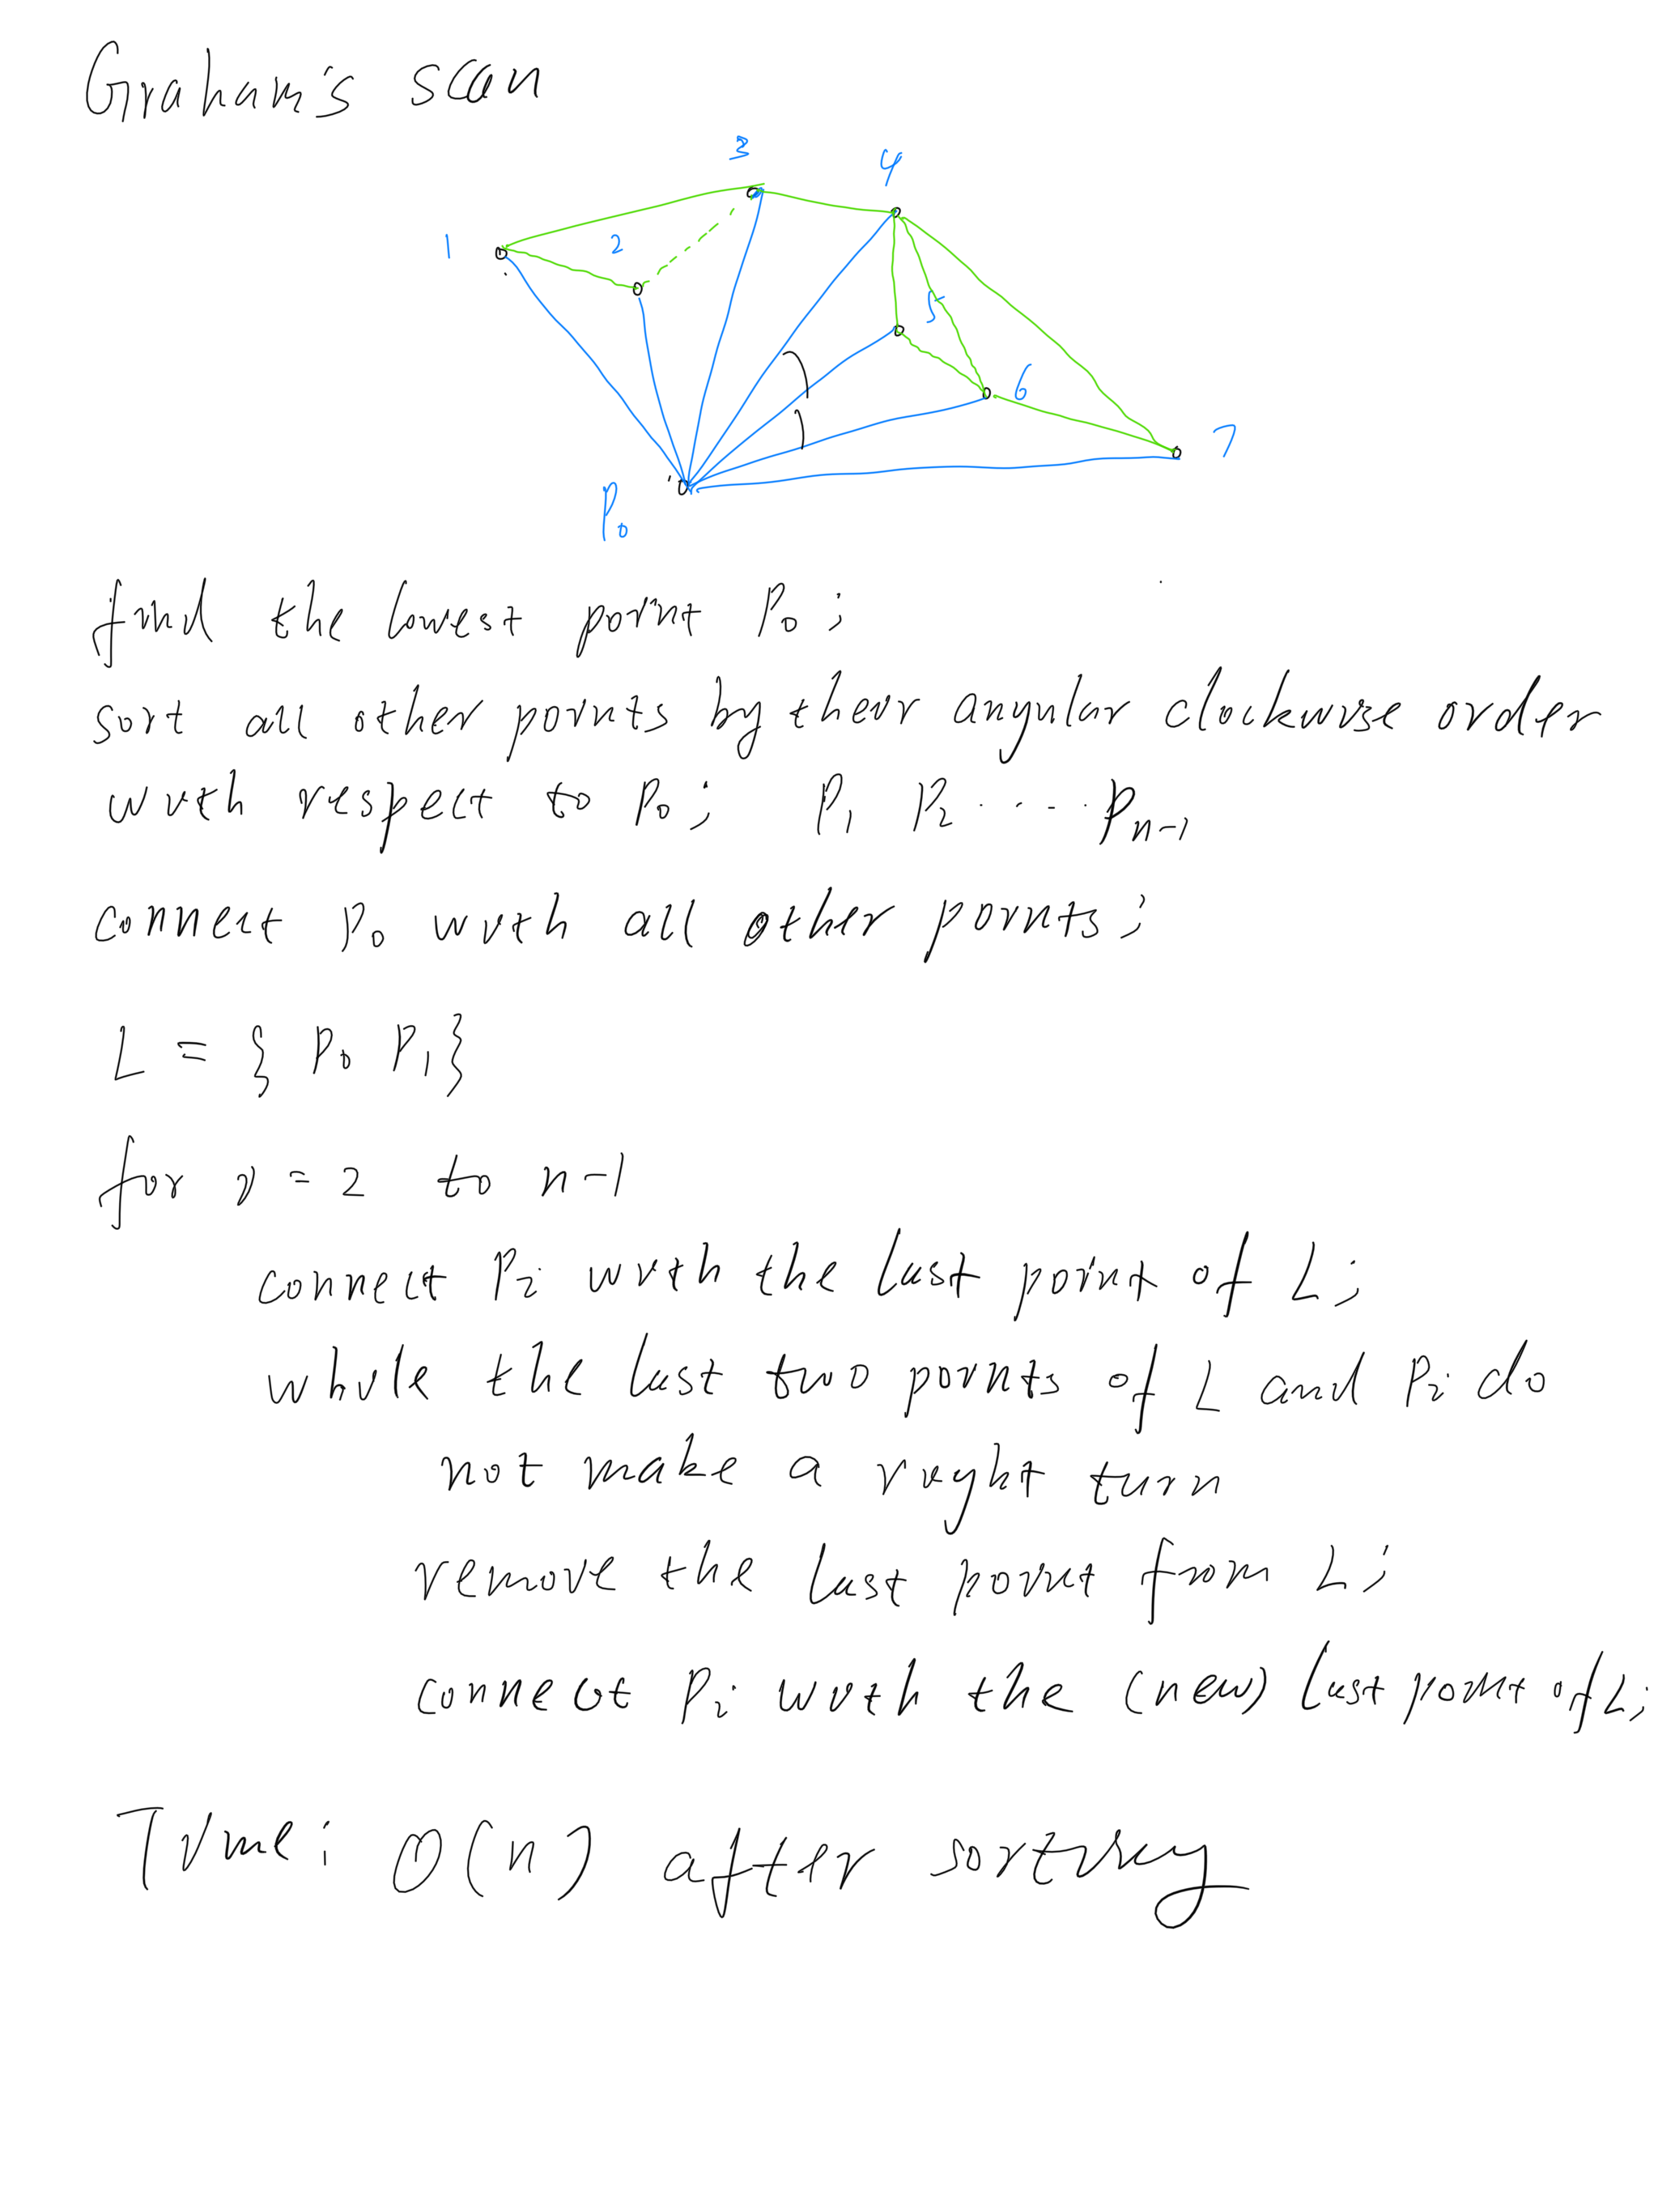 Graham's scan
3
4
1
2
5
6
7
P0
find the lowest point P0 ;
sort all other points by their angular clockwise order
with respect to P0 ; P1 P2 ···· Pn-1
connect P0 with all other points ;
L = { P0 P1 }
for i = 2 to n-1
connect Pi with the last point of L ;
while the last two points of L and Pi do
not make a right turn
remove the last point from L ;
connect Pi with the (new) last point of L ;
Time : O(n) after sorting